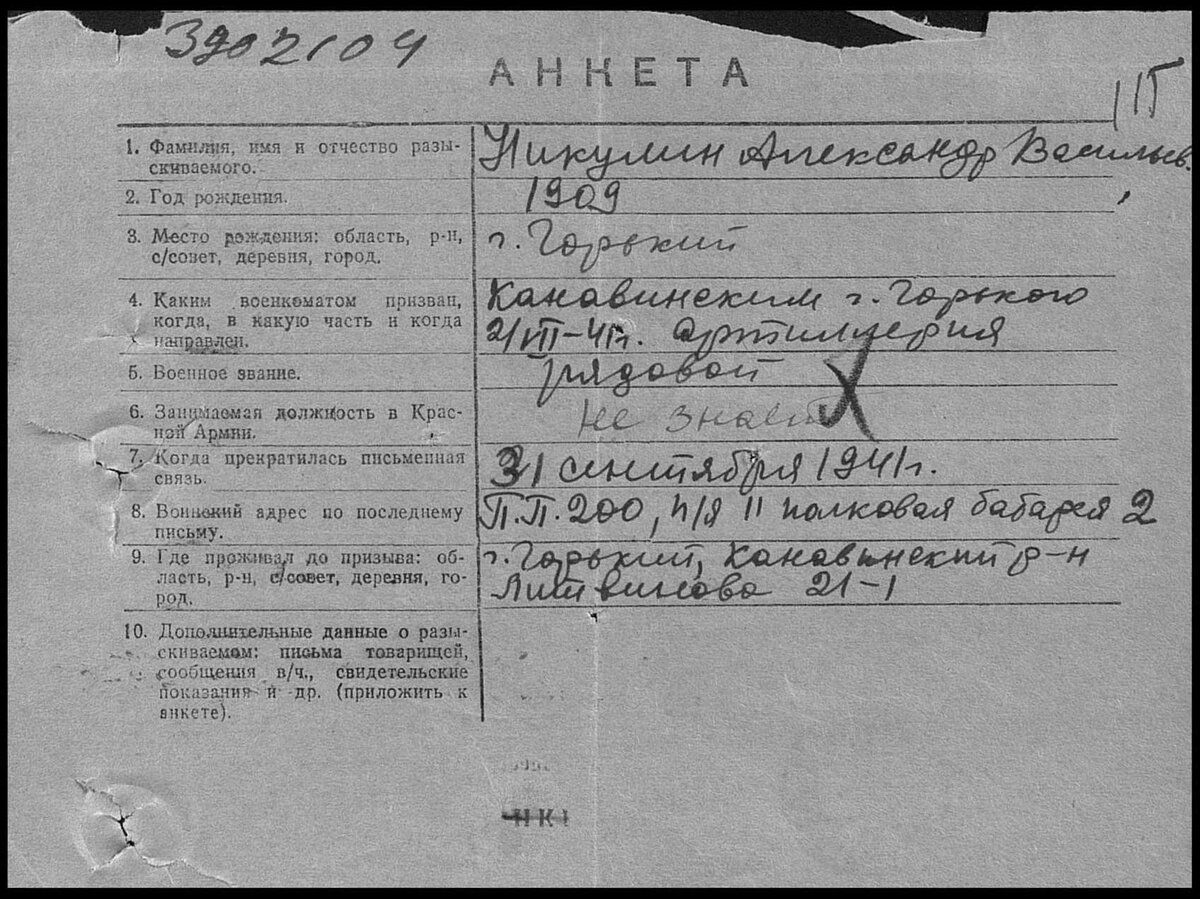 3902104
АНКЕТА
115
1. Фамилия, имя и отчество разы-
скиваемого.
Никулин Александр Васильев.
2. Год рождения.
1909
3. Место рождения: область, р-н,
с/совет, деревня, город.
г. Горький
4. Каким военкоматом призван,
когда, в какую часть и когда
направлен.
Канавинским г. Горького
21/VII-41г. Артиллерия
5. Военное звание.
рядовой
6. Занимаемая должность в Крас-
ной Армии.
не знает
7. Когда прекратилась письменная
связь.
31 сентября 1941г.
8. Воинский адрес по последнему
письму.
П.П. 200, п/я 11 полковая батарея 2
9. Где проживал до призыва: об-
ласть, р-н, с/совет, деревня, го-
род.
г. Горький, Канавинский р-н
Литвинова 21-1
10. Дополнительные данные о разы-
скиваемом: письма товарищей,
сообщения в/ч., свидетельские
показания и др. (приложить к
анкете).